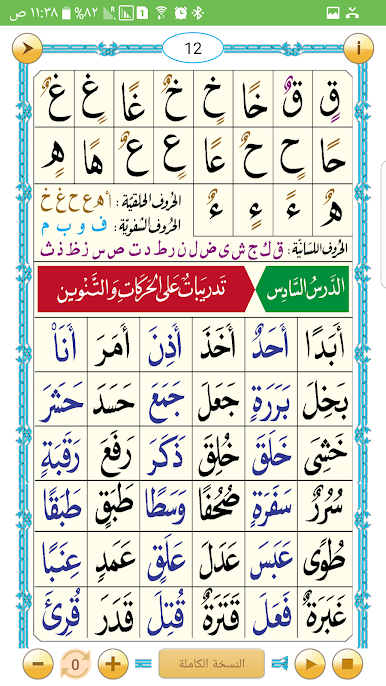 ١١:٣٨ ص ٨٢%
12
قٍ قٌ خًا خٍ خٌ غًا غٍ غٌ
حًا حٍ حٌ عًا عٍ عٌ هًا هٍ
هٌ ءً ءٍ ءٌ
الحروف الحلقيّة : أ هـ ع ح غ خ
الحروف الشفويّة : ف و ب م
الحروف اللسانيّة: ق ك ج ش ي ض ل ن ر ط د ت ص س ز ظ ذ ث
الدَّرسُ السَّادِس تَدريبَاتٌ عَلى الحَرَكَاتِ وَالتَّنْوين
أَبَدًا أَحَدٌ أَخَذَ أَذِنَ أَمَرَ أَنَا۠
بَخِلَ بَرَرَةٍ جَعَلَ جَمَعَ حَسَدَ حَشَرَ
خَشِيَ خَلَقَ خُلِقَ ذَكَرَ رَفَعَ رَقَبَةٍ
سُرُرٌ سَفَرَةٍ صُحُفًا وَسَطًا طَبَقٍ طَبَقًا
طُوًى عَبَسَ عَدَلَ عَلَقٍ عَمَدٍ عِنَبًا
غَبَرَةٌ فَعَلَ قَتَرَةٌ قُتِلَ قَدَرَ قُرِئَ
0 النسخة الكاملة